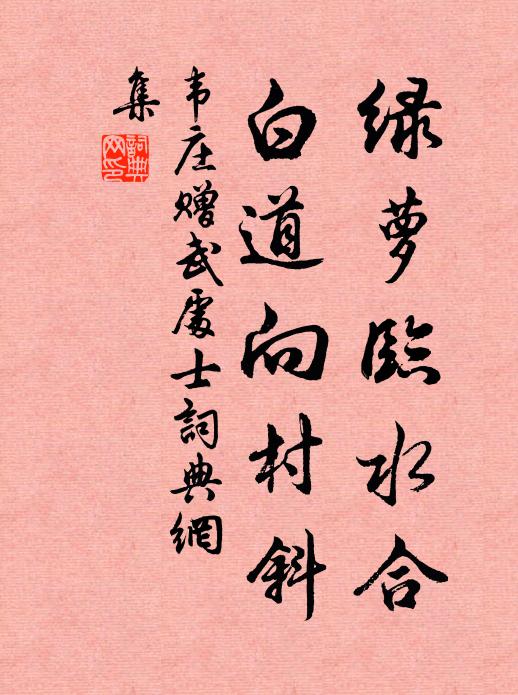 绿萝臨水合
白道向村斜
韦庄贈武處士詞典網
集
詞典
网印